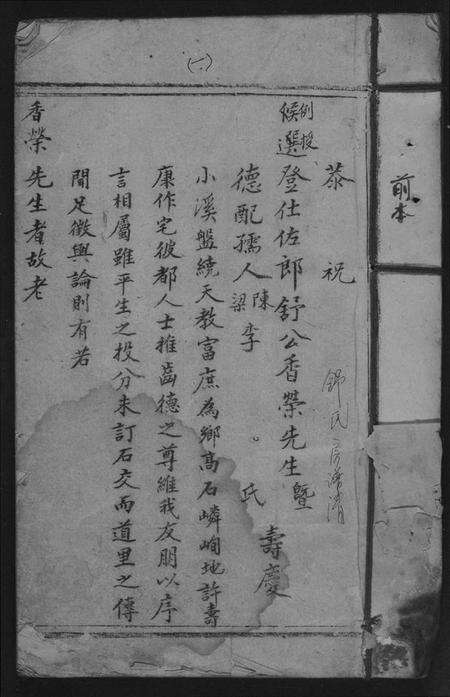 (一)
前本
恭祝
例授
候選登仕佐郎舒公香榮先生暨
德配孺人陳梁李氏 壽慶
小溪盤繞天教富庶為鄉高石嶙峋地許壽
康作宅彼都人士推齒德之尊維我友朋以序
言相屬雖平生之投分未訂石交而道里之傳
聞足徵輿論則有若
香榮先生者故老
舒氏